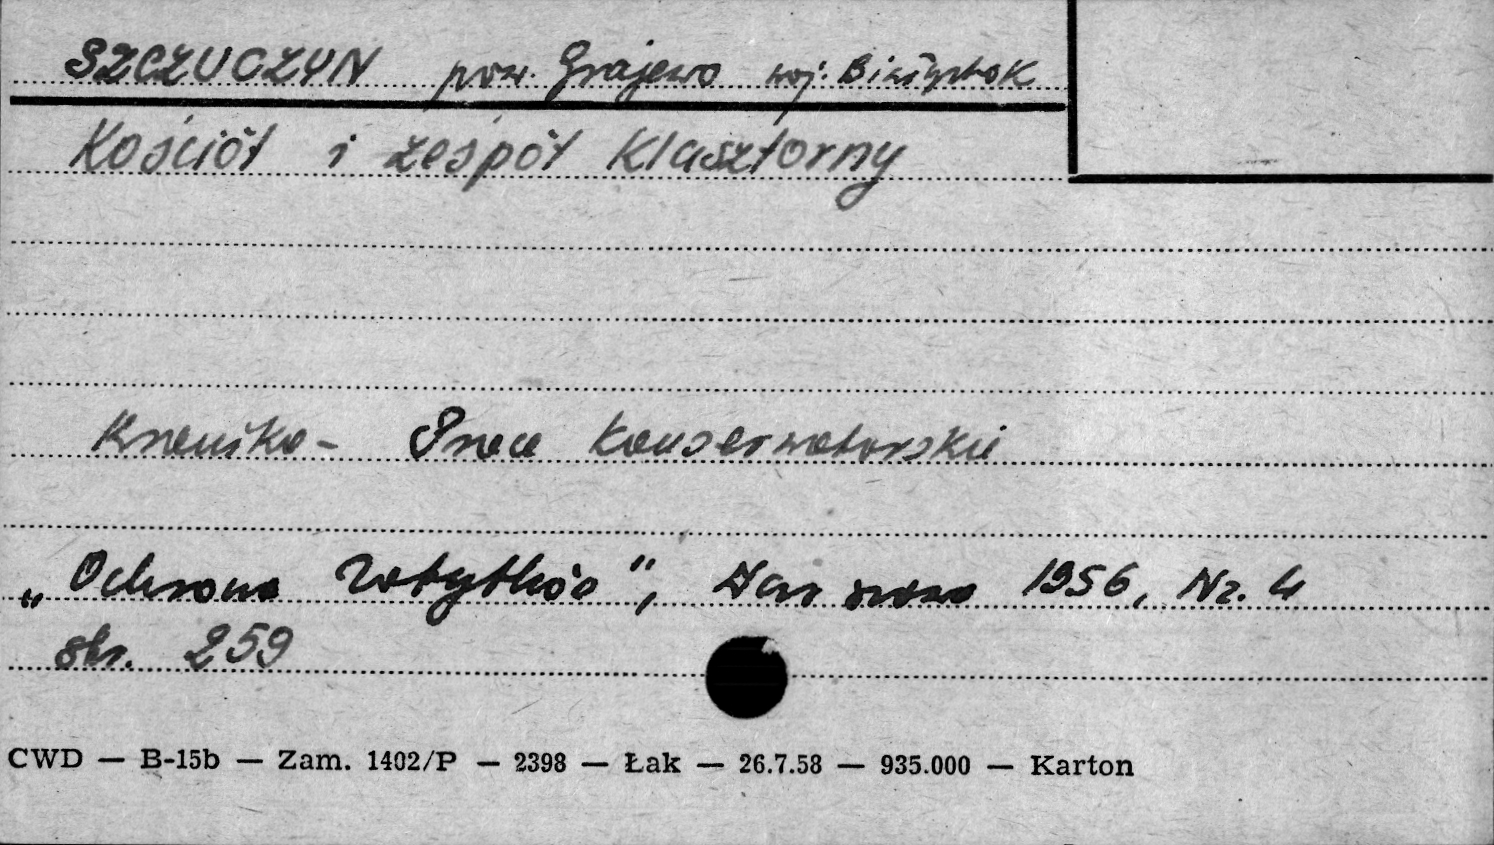 SZCZUCZYN pow. Grajewo woj. Białystok
Kościół i zespół Klasztorny
Kronika - Prace Konserwatorskie
„Ochrona Zabytków", Warszawa 1956, Nr. 4
str. 259
CWD — B-15b — Zam. 1402/P — 2398 — Łak — 26.7.58 — 935.000 — Karton